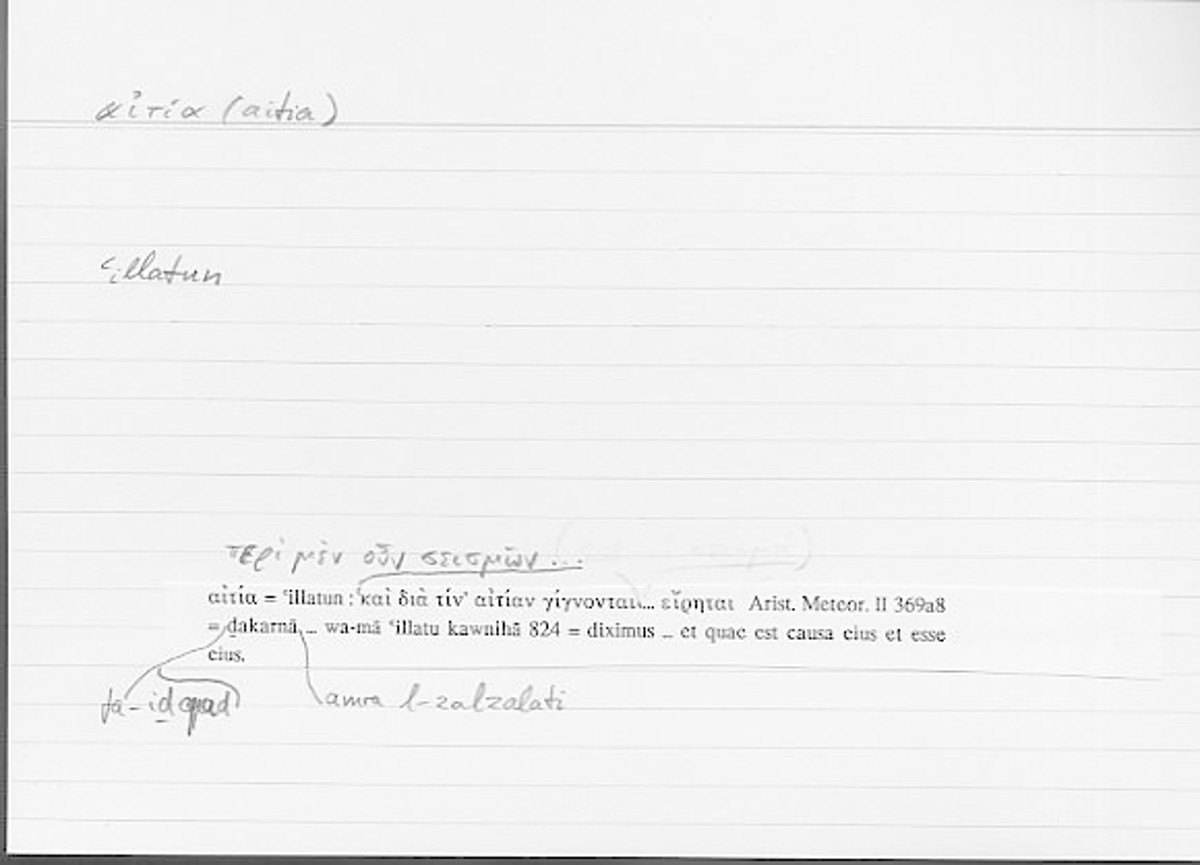 αἰτία (aitia)
ʿillatun
περὶ μὲν οὖν σεισμῶν ...
αἰτία = ʿillatun : καὶ διὰ τίν' αἰτίαν γίγνονται... εἴρηται Arist. Meteor. II 369a8
= ḏakarnā ... wa-mā ʿillatu kawnihā 824 = diximus ... et quae est causa eius et esse
eius.
fa-iḏ qad amra l-zalzalati